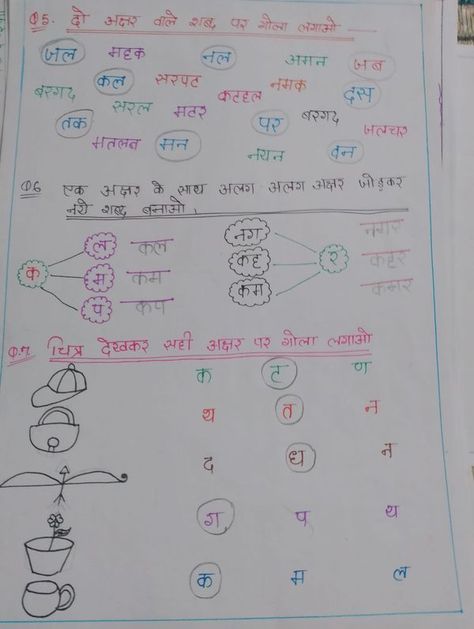 Q5. दो अक्षर वाले शब्द पर गोला लगाओ
जल महक नल अमन जब
बरगद कल सरपट कटहल नमक दस
तक सरल मटर पर बरगद जलचर
मतलब मन नयन वन
Q6 एक अक्षर के साथ अलग अलग अक्षर जोड़कर
नये शब्द बनाओ.
क ल कल नग र नगर
म कम कह कहर
प कप कम कमर
Q.7. चित्र देखकर सही अक्षर पर गोला लगाओ
क ट ण
थ त न
द ध न
ग प थ
क म ल